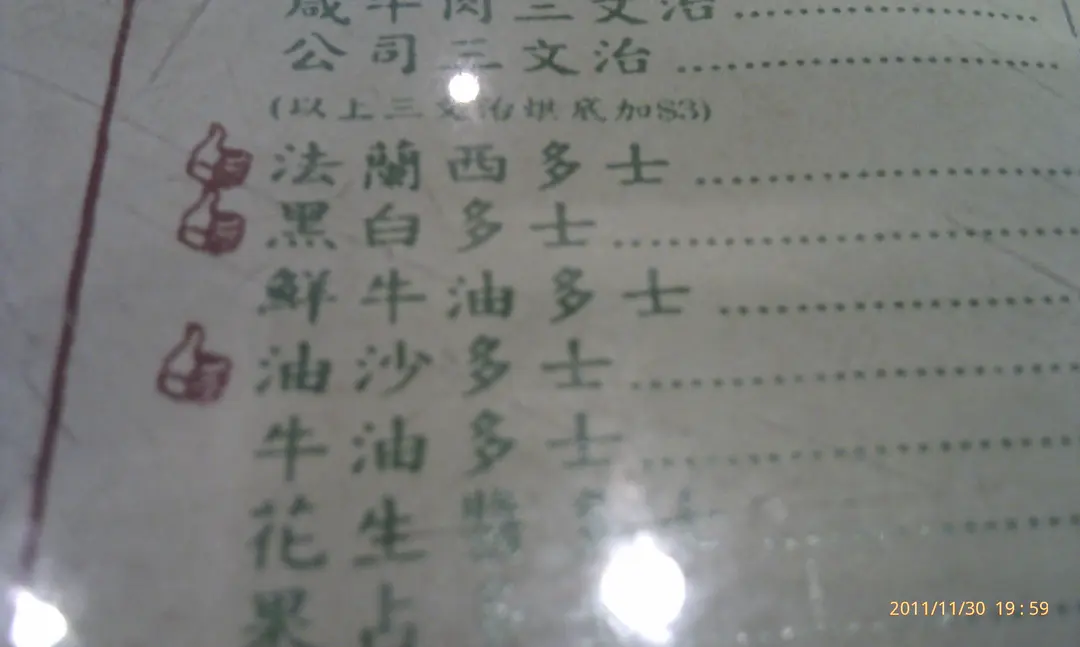 咸牛肉三文治
公司三文治
(以上三文治烘底加$3)
法蘭西多士
黑白多士
鮮牛油多士
油沙多士
牛油多士
花生醬多士
果占多
2011/11/30 19:59